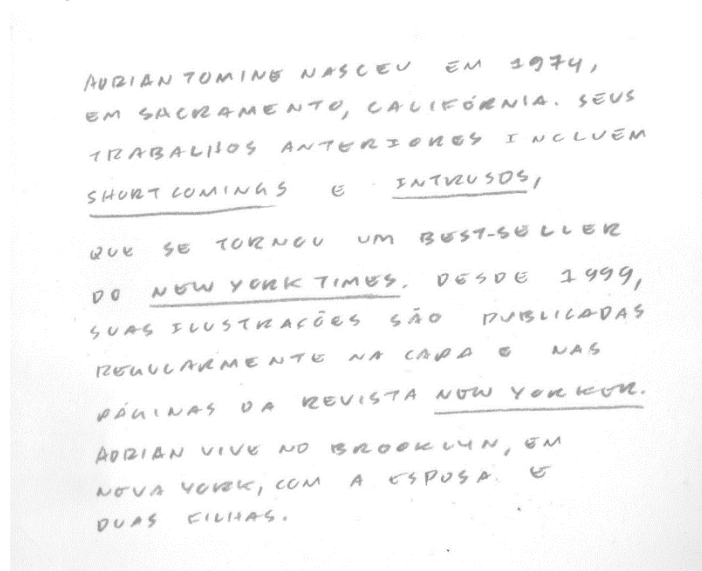 ADRIAN TOMINE NASCEU EM 1974,
EM SACRAMENTO, CALIFÓRNIA. SEUS
TRABALHOS ANTERIORES INCLUEM
SHORTCOMINGS E INTRUSOS,
QUE SE TORNOU UM BEST-SELLER
DO NEW YORK TIMES. DESDE 1999,
SUAS ILUSTRAÇÕES SÃO PUBLICADAS
REGULARMENTE NA CAPA E NAS
PÁGINAS DA REVISTA NEW YORKER.
ADRIAN VIVE NO BROOKLYN, EM
NOVA YORK, COM A ESPOSA E
DUAS FILHAS.